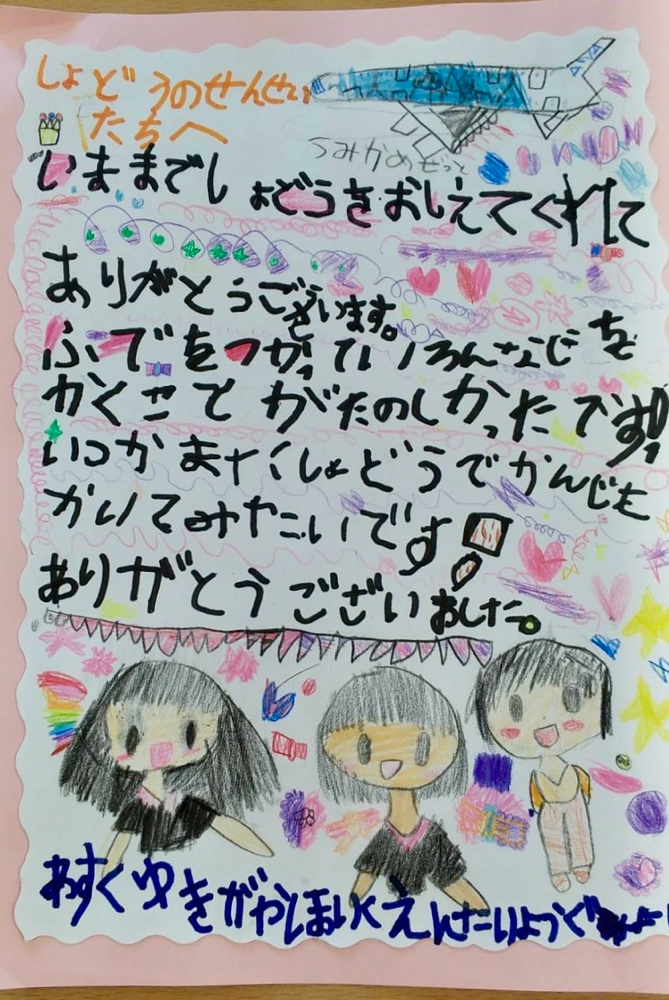 しょどうのせんせい
たちへ
うみがめぜっと
いままでしょどうをおしえてくれて
ありがとうございます。
ふでをつかっていろんなじを
かくことがたのしかったです!!
いつかまたしょどうでかんじも
かいてみたいです!
ありがとうございました。
あすくゆきがやほいくえんたいようぐ